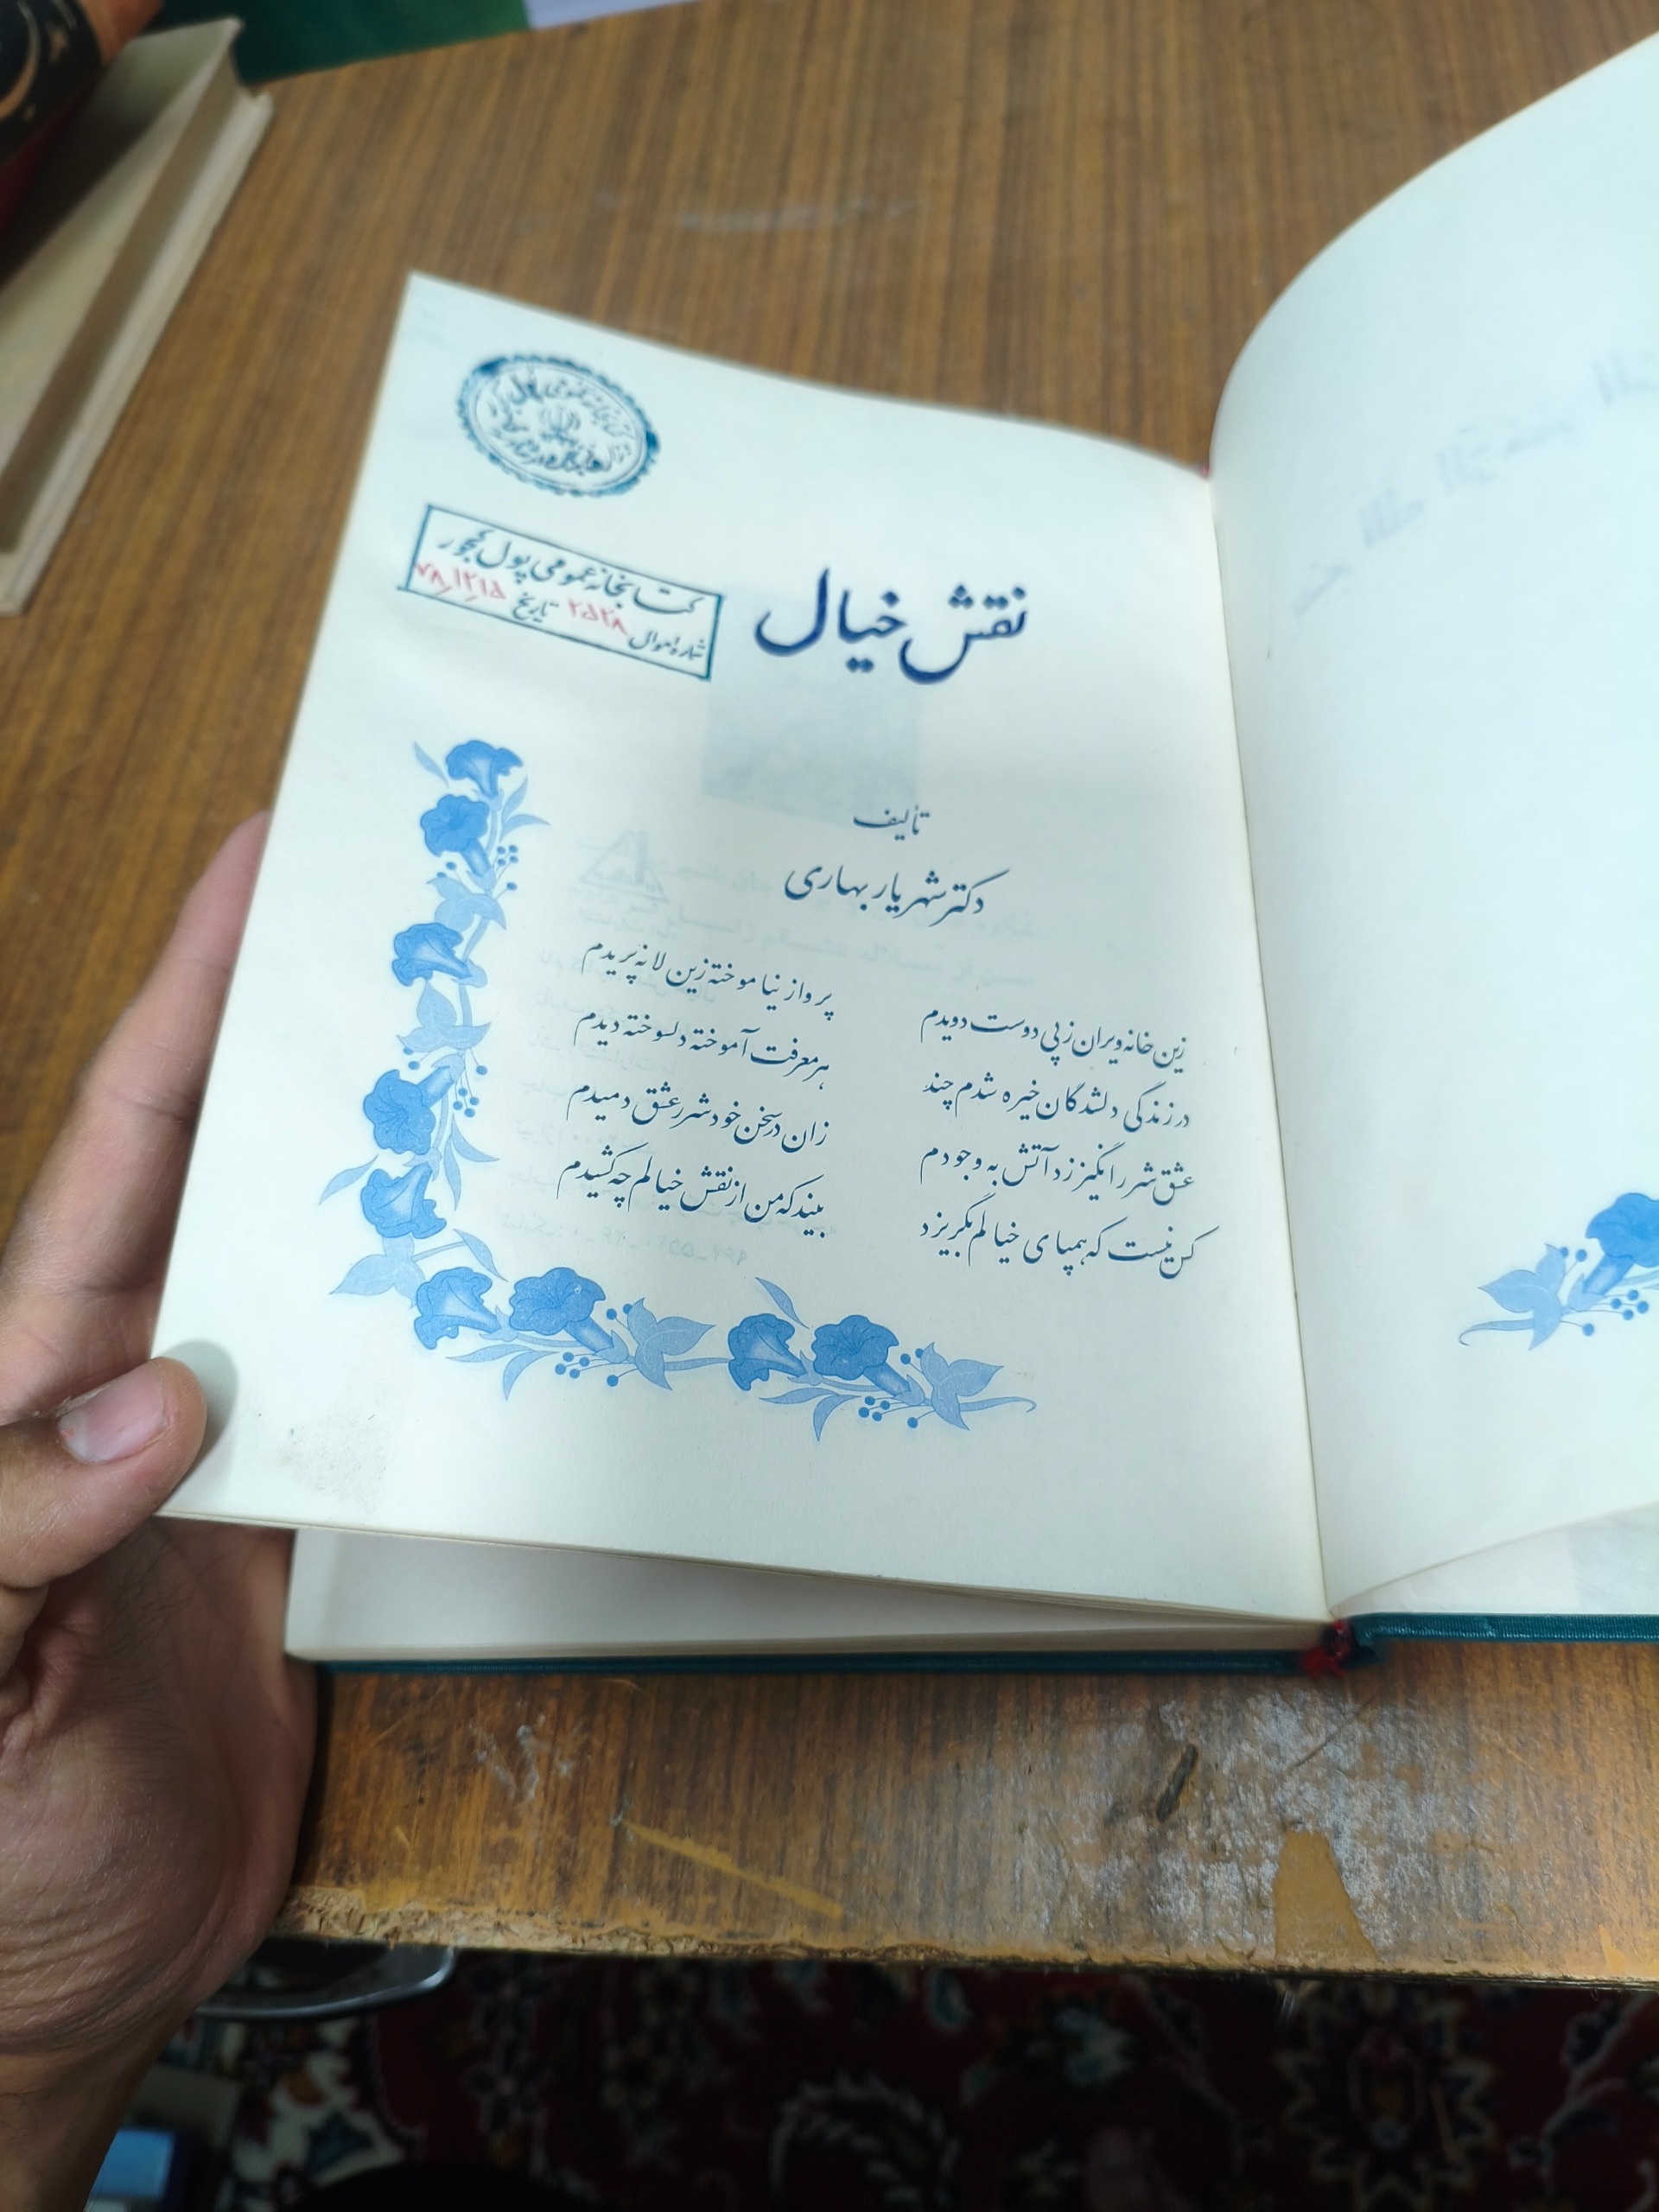 کتابخانه عمومی پول کجور
شماره اموال ۲۵۲۸ تاریخ ۷۸٫۱۲٫۱۵
نقش خیال
تألیف
دکتر شهریار بهاری
زین خانه ویران ز پی دوست دویدم
پرواز نیاموخته زین لانه پریدم
در زندگی دلشدگان خیره شدم چند
هر معرفت آموخته دلسوخته دیدم
عشق شررانگیز زد آتش به وجودم
زان در سخن خود شرر عشق دمیدم
کس نیست که همپای خیالم بگریزد
بیند که من از نقش خیالم چه کشیدم